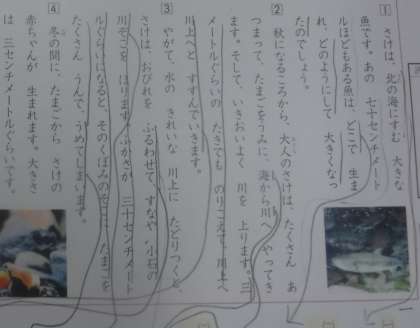 1 さけは、北の海にすむ 大きな
魚です。あの 七十センチメート
ルほどもある魚は、どこで 生ま
れ、どのようにして 大きくなっ
たのでしょう。
2 秋になるころから、大人のさけは、たくさん あ
つまって、たまごをうみに、海から川へ やってき
ます。そして、いきおいよく 川を 上ります。三
メートルぐらいの たきでも のりこえて、川上へ
川上へと すすんでいきます。
3 やがて、水の きれいな 川上に たどりつくと、
さけは、おびれを ふるわせて、すなや 小石の
川ぞこを ほります。ふかさが 三十センチメート
ルぐらいになると、そのくぼみのそこに たまごを
たくさん うんで、うめてしまいます。
4 冬の間に、たまごから さけの
赤ちゃんが 生まれます。大きさ
は 三センチメートルぐらいです。